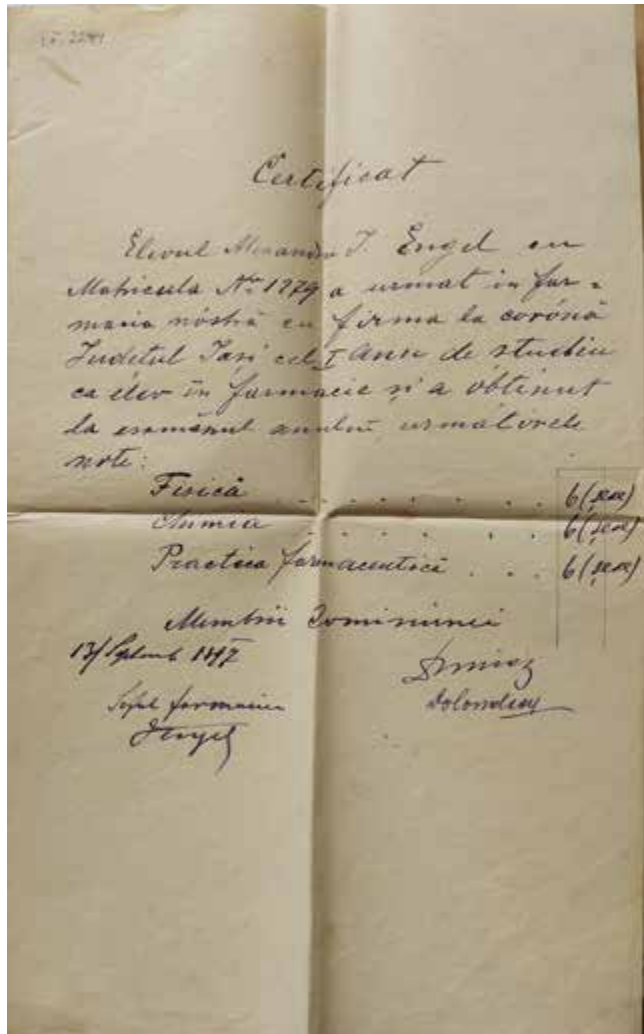 Certificat
Elevul Alexandru I. Engel cu
Matricula No 1279 a urmat in far-
macia nóstră cu firma la corónă
Judetul Iasi cel I anu de studiu
ca elev în farmacie și a obtinut
la esamenul anului urmatórele
note:
Fisică . . . . . . . 6 (șese)
Chimia . . . . . . 6 (șese)
Practica farmaceutică . . . 6 (șese)
Membrii Comisiunei
13/ Septemb
Șeful farmaciei
Engel